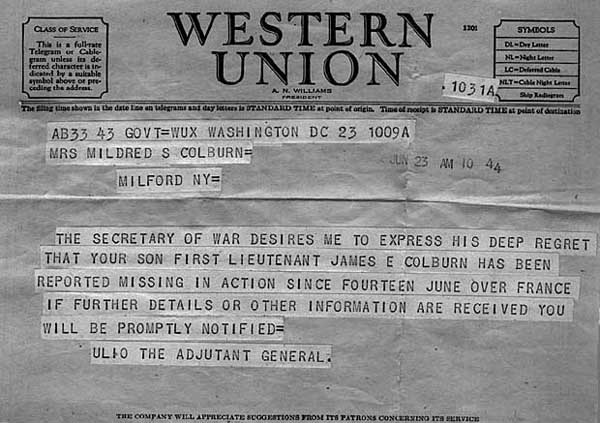 CLASS OF SERVICE
This is a full-rate
Telegram or Cable-
gram unless its de-
ferred character is in-
dicated by a suitable
symbol above or pre-
ceding the address.
WESTERN
UNION
A. N. WILLIAMS
PRESIDENT
1201
SYMBOLS
DL=Day Letter
NL=Night Letter
LC=Deferred Cable
NLT=Cable Night Letter
Ship Radiogram
The filing time shown in the date line on telegrams and day letters is STANDARD TIME at point of origin. Time of receipt is STANDARD TIME at point of destination
1031A
AB33 43 GOVT=WUX WASHINGTON DC 23 1009A
MRS MILDRED S COLBURN=
JUN 23 AM 10 44
MILFORD NY=
THE SECRETARY OF WAR DESIRES ME TO EXPRESS HIS DEEP REGRET
THAT YOUR SON FIRST LIEUTENANT JAMES E COLBURN HAS BEEN
REPORTED MISSING IN ACTION SINCE FOURTEEN JUNE OVER FRANCE
IF FURTHER DETAILS OR OTHER INFORMATION ARE RECEIVED YOU
WILL BE PROMPTLY NOTIFIED=
ULIO THE ADJUTANT GENERAL.
THE COMPANY WILL APPRECIATE SUGGESTIONS FROM ITS PATRONS CONCERNING ITS SERVICE